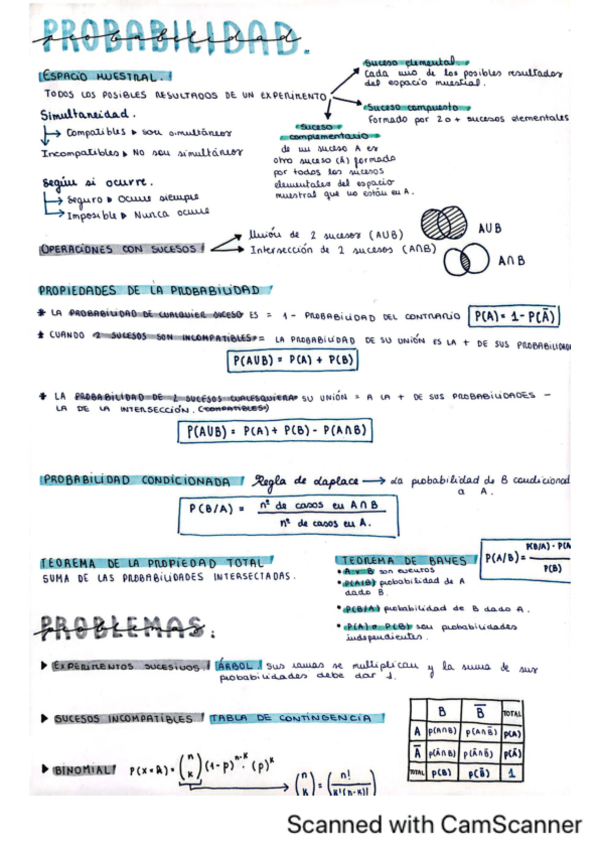 PROBABILIDAD.
probabilidad
ESPACIO MUESTRAL.
TODOS LOS POSIBLES RESULTADOS DE UN EXPERIMENTO
Suceso elemental.
Cada uno de los posibles resultados
del espacio muestral.
Suceso compuesto
Formado por 2 o + sucesos elementales
Suceso
complementario
de un suceso A es
otro suceso (Ā) formado
por todos los sucesos
elementales del espacio
muestral que no están en A.
Simultaneidad.
Compatibles ▸ son simultáneos
Incompatibles ▸ No son simultáneos
Según si ocurre.
Seguro ▸ Ocurre siempre
Imposible ▸ Nunca ocurre
OPERACIONES CON SUCESOS
Unión de 2 sucesos (AUB)
Intersección de 2 sucesos (A∩B)
AUB
A∩B
PROPIEDADES DE LA PROBABILIDAD
* LA PROBABILIDAD DE CUALQUIER SUCESO ES = 1 - PROBABILIDAD DEL CONTRARIO P(A) = 1 - P(Ā)
* CUANDO 2 SUCESOS SON INCOMPATIBLES = LA PROBABILIDAD DE SU UNIÓN ES LA + DE SUS PROBABILIDA
P(AUB) = P(A) + P(B)
* LA PROBABILIDAD DE 2 SUCESOS CUALESQUIERA SU UNIÓN = A LA + DE SUS PROBABILIDADES -
LA DE LA INTERSECCIÓN. (COMPATIBLES)
P(AUB) = P(A) + P(B) - P(A∩B)
PROBABILIDAD CONDICIONADA Regla de Laplace → La probabilidad de B condicionad
a A.
P(B/A) = nº de casos en A∩B
nº de casos en A.
TEOREMA DE LA PROPIEDAD TOTAL
SUMA DE LAS PROBABILIDADES INTERSECTADAS.
TEOREMA DE BAYES
P(A/B) = P(B/A) · P(A
P(B)
• A y B son eventos
• P(A/B) probabilidad de A
dado B.
• P(B/A) probabilidad de B dado A.
• P(A) o P(B) son probabilidades
independientes.
PROBLEMAS.
problemas
▸ EXPERIMENTOS SUCESIVOS ÁRBOL Sus ramas se multiplican y la suma de sus
probabilidades debe dar 1.
▸ SUCESOS INCOMPATIBLES TABLA DE CONTINGENCIA
B B̄ TOTAL
A P(A∩B) P(A∩B̄) P(A)
Ā P(Ā∩B) P(Ā∩B̄) P(Ā)
TOTAL P(B) P(B̄) 1
▸ BINOMIAL P(x=k) = (n k) (1-p)ⁿ⁻ᵏ · (p)ᵏ
(n k) = (n! k!(n-k)!)
Scanned with CamScanner